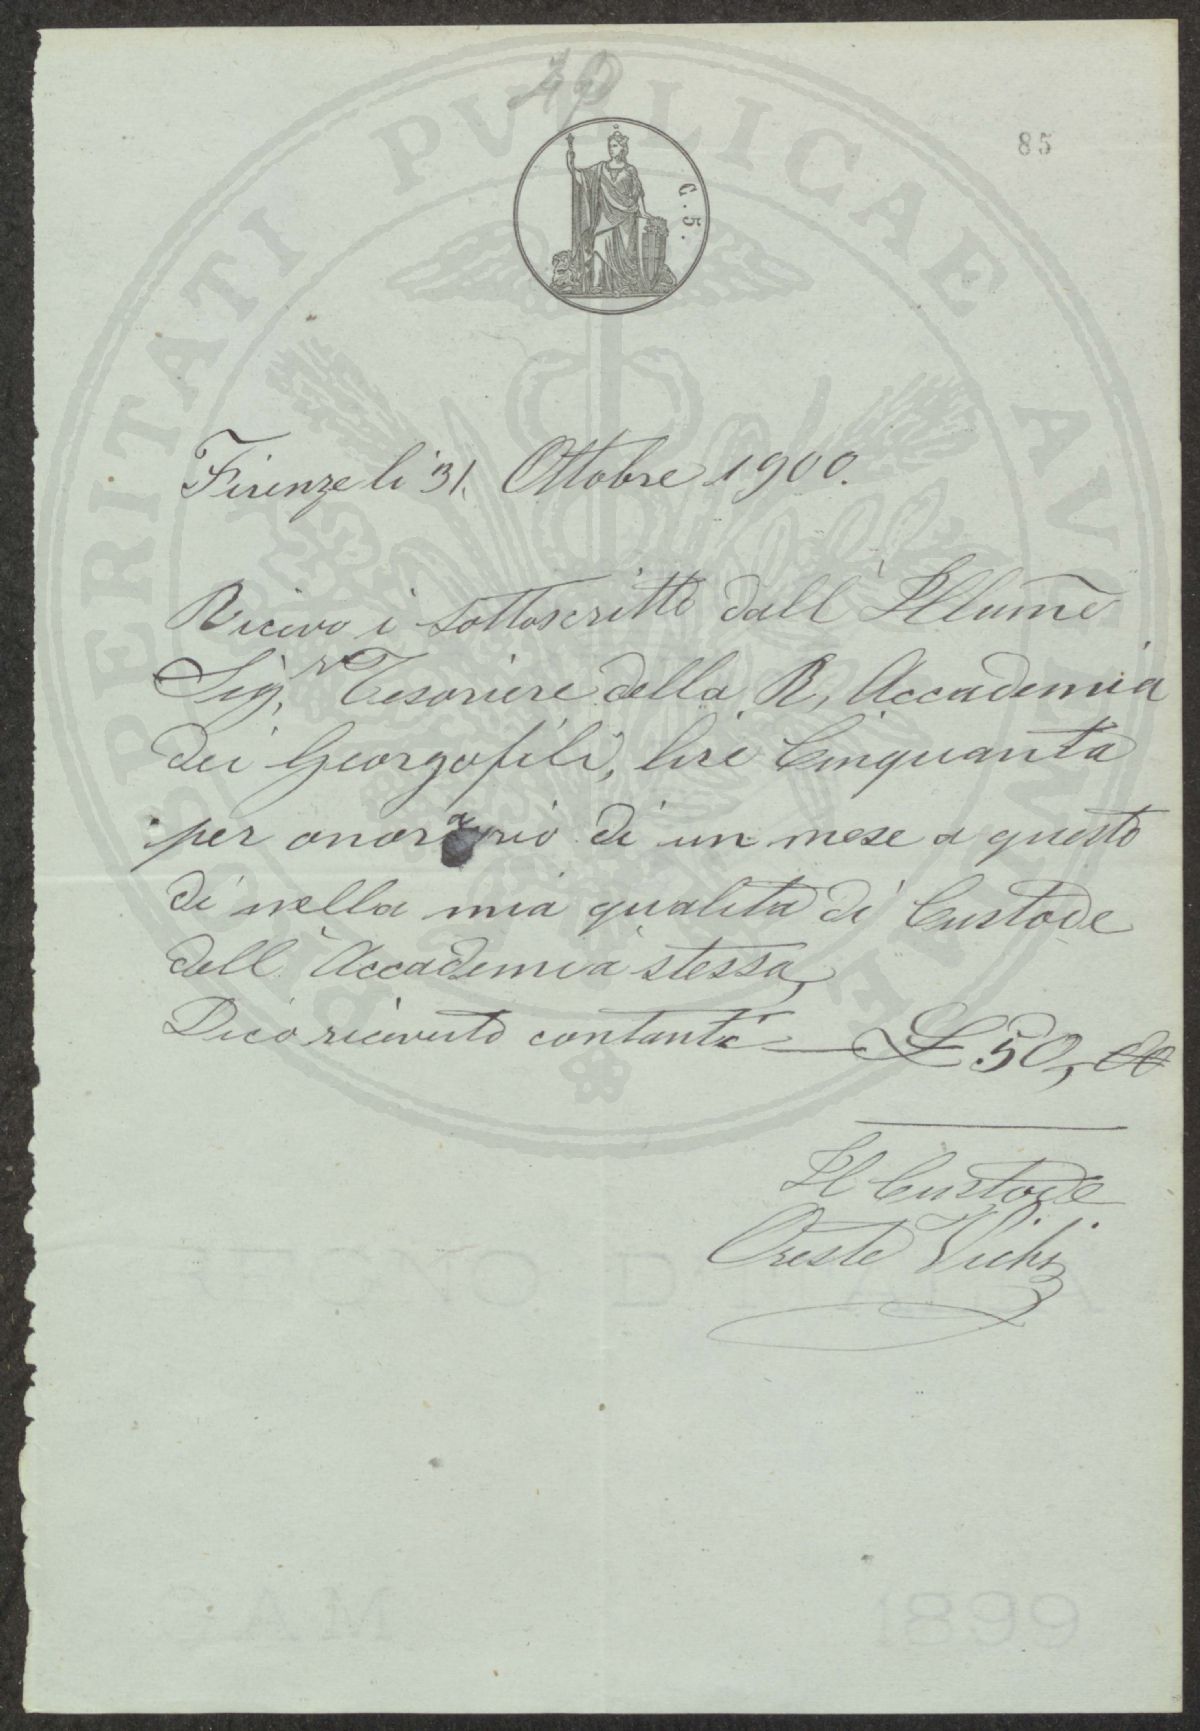 40
85
C. 5.
Firenze li 31. Ottobre 1900.
Ricevo i sottoscritto dall' Illume
Sigr. Tesoriere della R. Accademia
dei Georgofili, lire Cinquanta
per onorario di un mese a questo
di nella mia qualita di Custode
dell' Accademia stessa,
Dico ricevuto contanti — L 50,00
Il Custode
Oreste Vichi
PROSPERITATI PVBLICAE AVGENDAE
1899